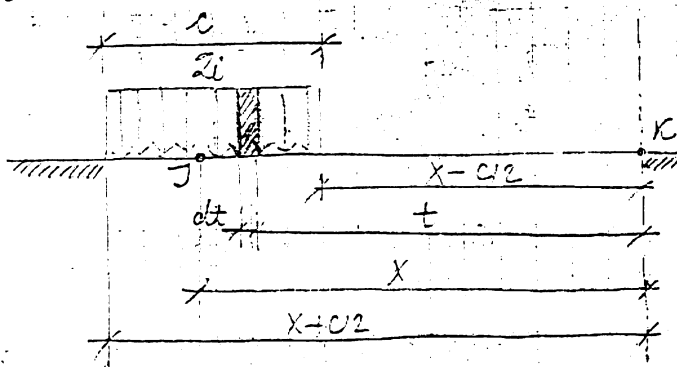 c
2i
J
K
X-C/2
dt
t
X
X+C/2